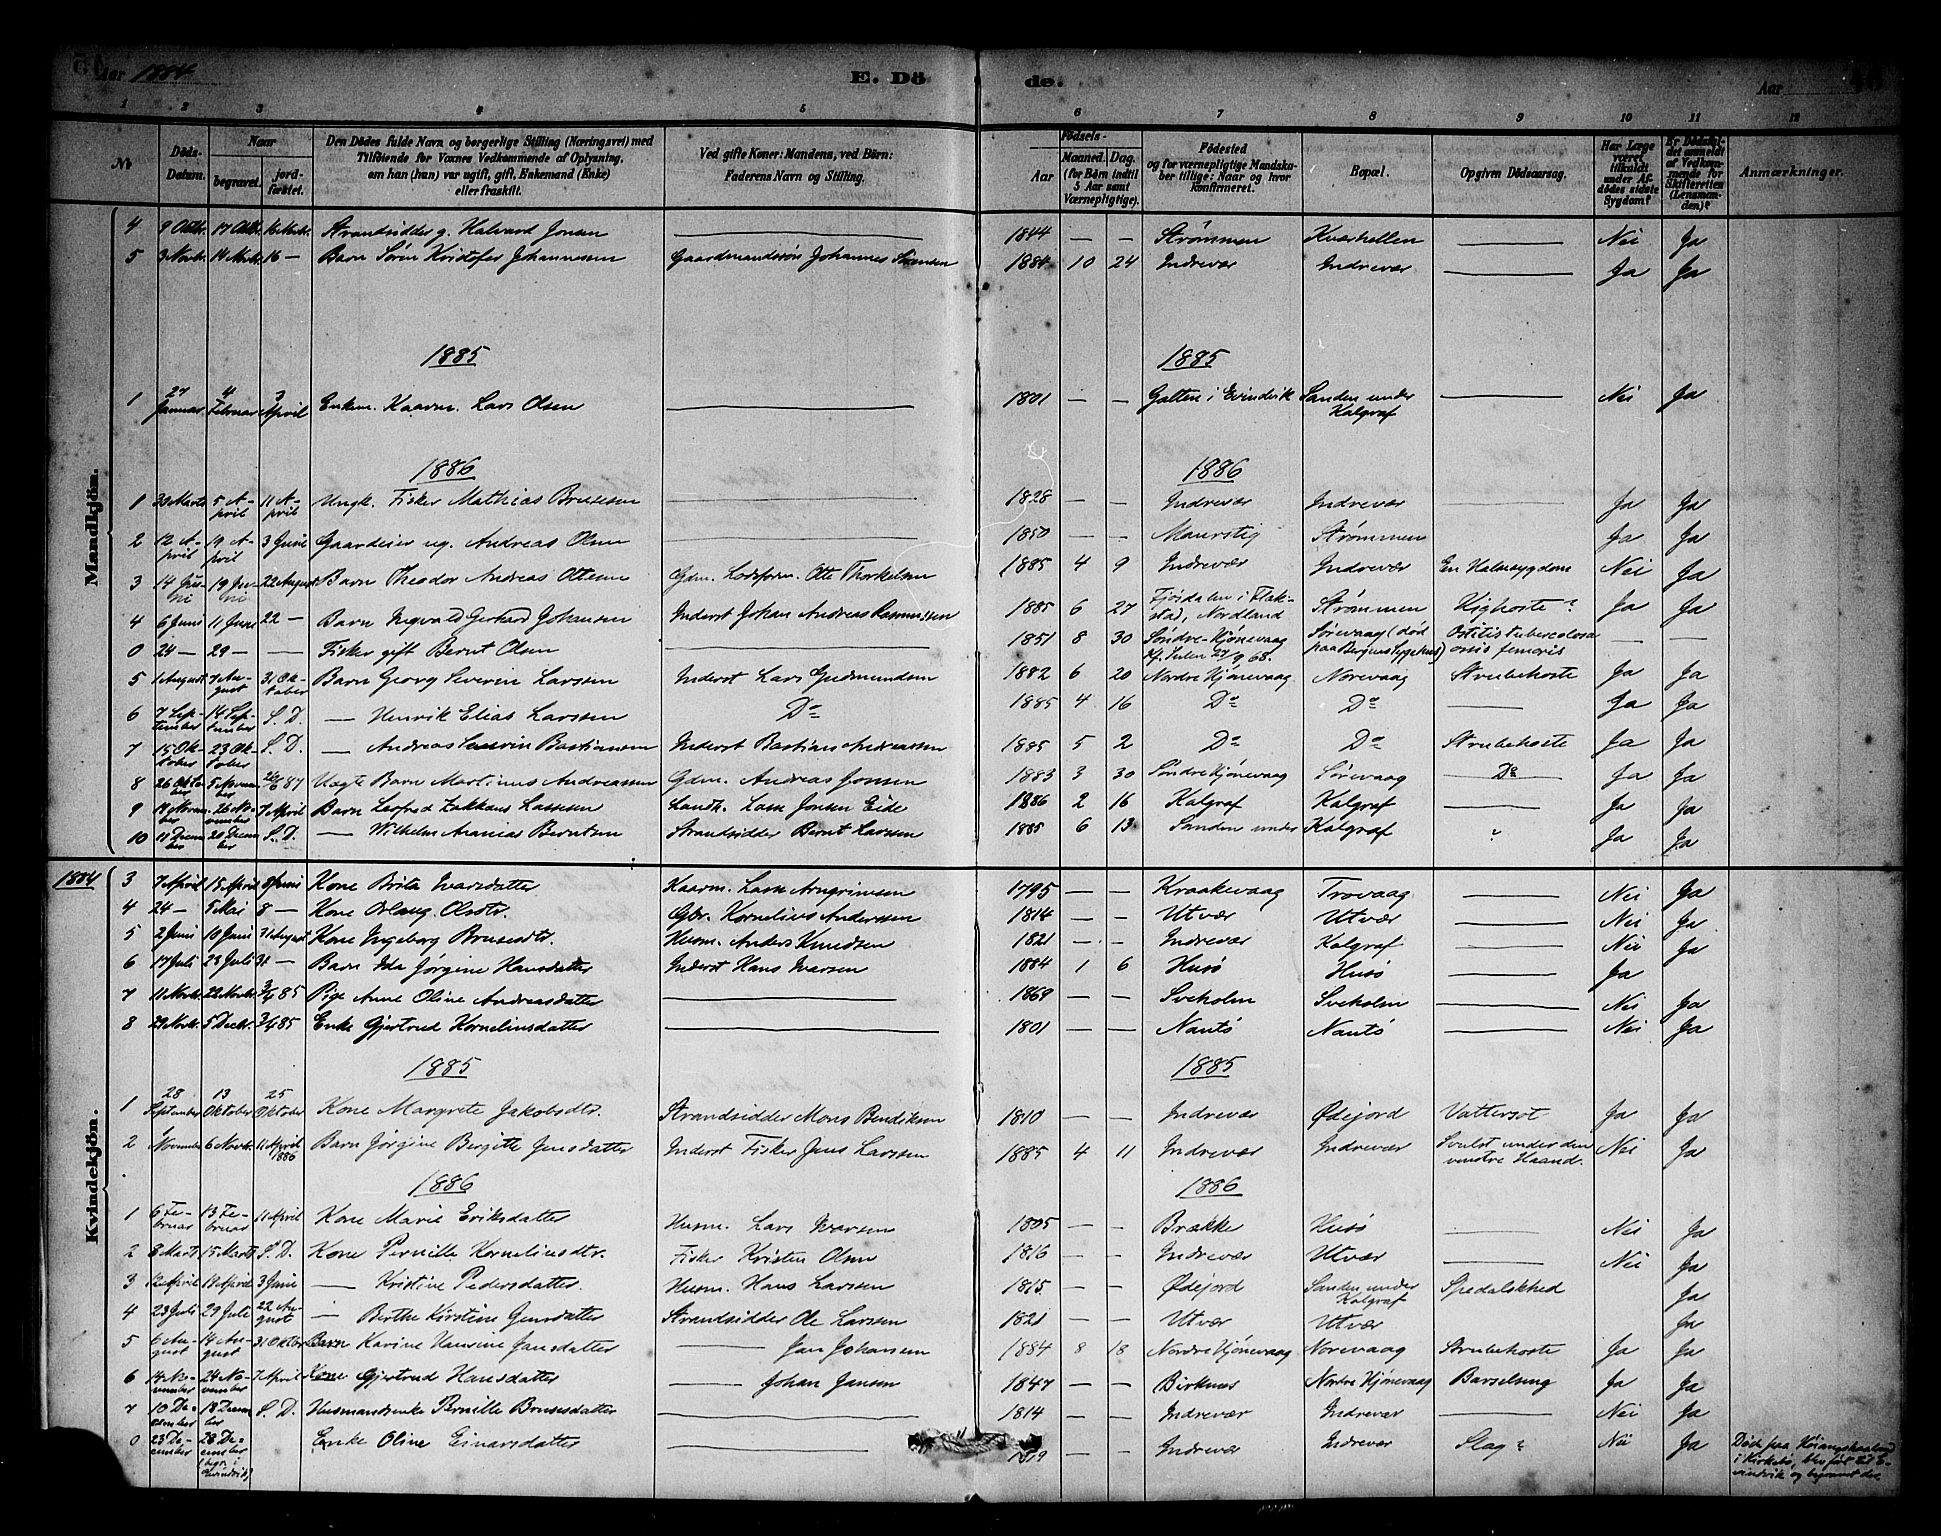 Aar 1884
E. Dö
de.
Aar
1 2 3 4 5 6 7 8 9 10 11 12
No
Döds-Datum.
Naar
begravet.
jord-fæstet.
Den Dödes fulde Navn og borgerlige Stilling (Næringsvei) med
Tilföiende for Voxnes Vedkommende af Oplysning,
om han (hun) var ugift, gift, Enkemand (Enke)
eller fraskilt.
Ved gifte Koner: Mandens, ved Börn:
Faderens Navn og Stilling.
Födsels-
Aar
Maaned. Dag.
(for Börn indtil
5 Aar samt
Værnepligtige).
Födested
og for værnepligtige Mandska-
ber tillige: Naar og hvor
konfirmeret.
Bopæl.
Opgiven Dödsaarsag.
Har Læge
været
tilkaldt
under Af-
dödes sidste
Sygdom?
Er Dödsfal-
det anmeldt
af Vedkom-
mende for
Skifteretten
(Lensman-
den)?
Anmærkninger.
Mandkjön.
4 9 Oktbr. 17 Oktbr. Strandsidder g. Halvard Jonsen — 1844 — — Strømmen Kværhellen — Nei Ja
5 3 Novbr. 14 Novbr. 16 — Barn Søren Kristofer Johannessen Gaardmandssøn Johannes Sørensen 1884 10 24 Indrevær Indrevær — Ja Ja
1885 1885
1 27 Januar 4 Februar 3 April Enkem. Kaarm. Lars Olsen — 1801 — — Gotten i Evindvik Sanden under Kalgraf — Nei Ja
1886 1886
1 30 Marts 5 April 11 April Ungk. Fisker Mathias Brusesen — 1828 — — Indrevær Indrevær — Ja Ja
2 12 April 19 April 3 Juni Gaardeier ug. Andreas Olsen — 1850 — — Maurstig Strømmen Ja Ja
3 14 Juni 19 Juni 22 August Barn Theodor Andreas Ottesen Gdm. Lodsform. Otte Thorkelsen 1885 4 9 Indrevær Indrevær En Halssygdom Nei Ja
4 6 Juni 11 Juni 22 — Barn Ingvald Gerhard Johansen Inderst Johan Andreas Rasmussen 1885 6 27 Fjøsdalen i Flakstad, Nordland Strømmen Kighoste? Ja Ja
0 24 — 29 — — Fisker gift Bernt Olsen — 1851 8 30 Søndre-Hjønevaag Kf. Sulen 27/9 68. Sørevaag (død paa Bergens Sygehus) Ostitis tuberculosa ossis femoris — —
5 1 August 7 August 31 Oktober Barn Georg Severin Larssen Inderst Lars Gudmundsen 1882 6 20 Nordre Hjønevaag Norevaag Strubehoste Ja Ja
6 7 September 14 September S. D. — Henrik Elias Larssen Do 1885 4 16 Do Do — Ja Ja
7 15 Oktober 23 Oktober S. D. — Andreas Severin Bastiansen Inderst Bastian Andreassen 1885 5 2 Do Do Strubehoste Ja Ja
8 26 Oktober 5 November 26/6 87 Uægte Barn Martinus Andreassen Gdm. Andreas Jonsen 1883 3 30 Søndre Hjønevaag Sørevaag Do Ja Ja
9 14 November 26 November 7 April Barn Leifred Zakkæus Lassesen Landh. Lasse Jonsen Eide 1886 2 16 Kalgraf Kalgraf — Ja Ja
10 11 December 20 December S. D. — Wilhelm Ananias Berntsen Strandsidder Bernt Larssen 1885 6 13 Sanden under Kalgraf ? Ja Ja
Kvindekjön.
1884 3 7 April 15 April 8 Juni Kone Brita Ivarsdatter Kaarm. Lasse Arngrimsen 1795 — — Kraakevaag Trovaag — Nei Ja
4 24 — 5 Mai 8 — Kone Orlaug Olsdtr. Gbr. Kornelius Andersen 1814 — — Utvær Utvær — Nei Ja
5 2 Juni 10 Juni 31 August Kone Ingeborg Brusesdtr. Husm. Anders Knudsen 1821 — — Indrevær Kalgraf — Nei Ja
6 17 Juli 23 Juli 31 — Barn Ida Jørgine Hansdatter Inderst Hans Ivarsen 1884 1 6 Husø Husø — Ja
7 11 Novbr. 22 Novbr. 3/4 85 Pige Anne Oline Andreasdatter — 1869 — — Sveholm Sveholm — Nei Ja
8 29 Novbr. 5 Decbr. 3/4 85 Enke Gjertrud Kornelius­datter — 1801 — — Nautø Nautø — Nei Ja
1885 1885
1 28 September 13 Oktober 25 Oktober Kone Margrete Jakobsdtr. Strandsidder Mons Bendiksen 1810 — — Indrevær Ødejord Vattersot Ja Ja
2 1 November 6 Novbr. 11 April 1886 Barn Jørgine Bergitte Jensdatter Inderst Fisker Jens Larssen 1885 4 11 Indrevær Indrevær Svulst under den venstre Haand. Nei Ja
1886 1886
1 6 Februar 13 Februar 11 April Kone Marie Eriksdatter Husm. Lars Ivarsen 1805 — — Brække Husø — Nei Ja
2 8 Marts 15 Marts S. D. Kone Pernille Korneliusdtr. Fisker Kristen Olsen 1816 — — Indrevær Utvær — Nei Ja
3 12 April 19 April 3 Juni — Kristine Pedersdatter Husm. Hans Larssen 1815 — — Ødejord Sanden under Kalgraf Spedalskhed Ja
4 23 Juli 29 Juli 22 August — Berthe Kirstine Jensdatter Strandsidder Ole Larssen 1821 — — Utvær Utvær Ja
5 6 August 14 August 31 Oktbr Barn Karine Hansine Jansdatter — Jan Johansen 1884 8 18 Nordre Hjønevaag Norevaag Strubehoste Ja Ja
6 14 November 24 November 7 April Kone Gjertrud Hansdatter — Johan Jansen 1847 — — Birknes Nordre Hjønevaag Barselseng Ja Ja
7 10 December 18 December S. D. Husmandsenke Pernille Brusesdatter — 1814 — — Indrevær Indrevær — Nei Ja
0 23 December 28 December (begr. i Evindvik) Enke Oline Einarsdatter — 1819 Indrevær Indrevær Slag? Nei Ja Døde paa i Kirkebø, blev ført til Evindvik og begravet der.